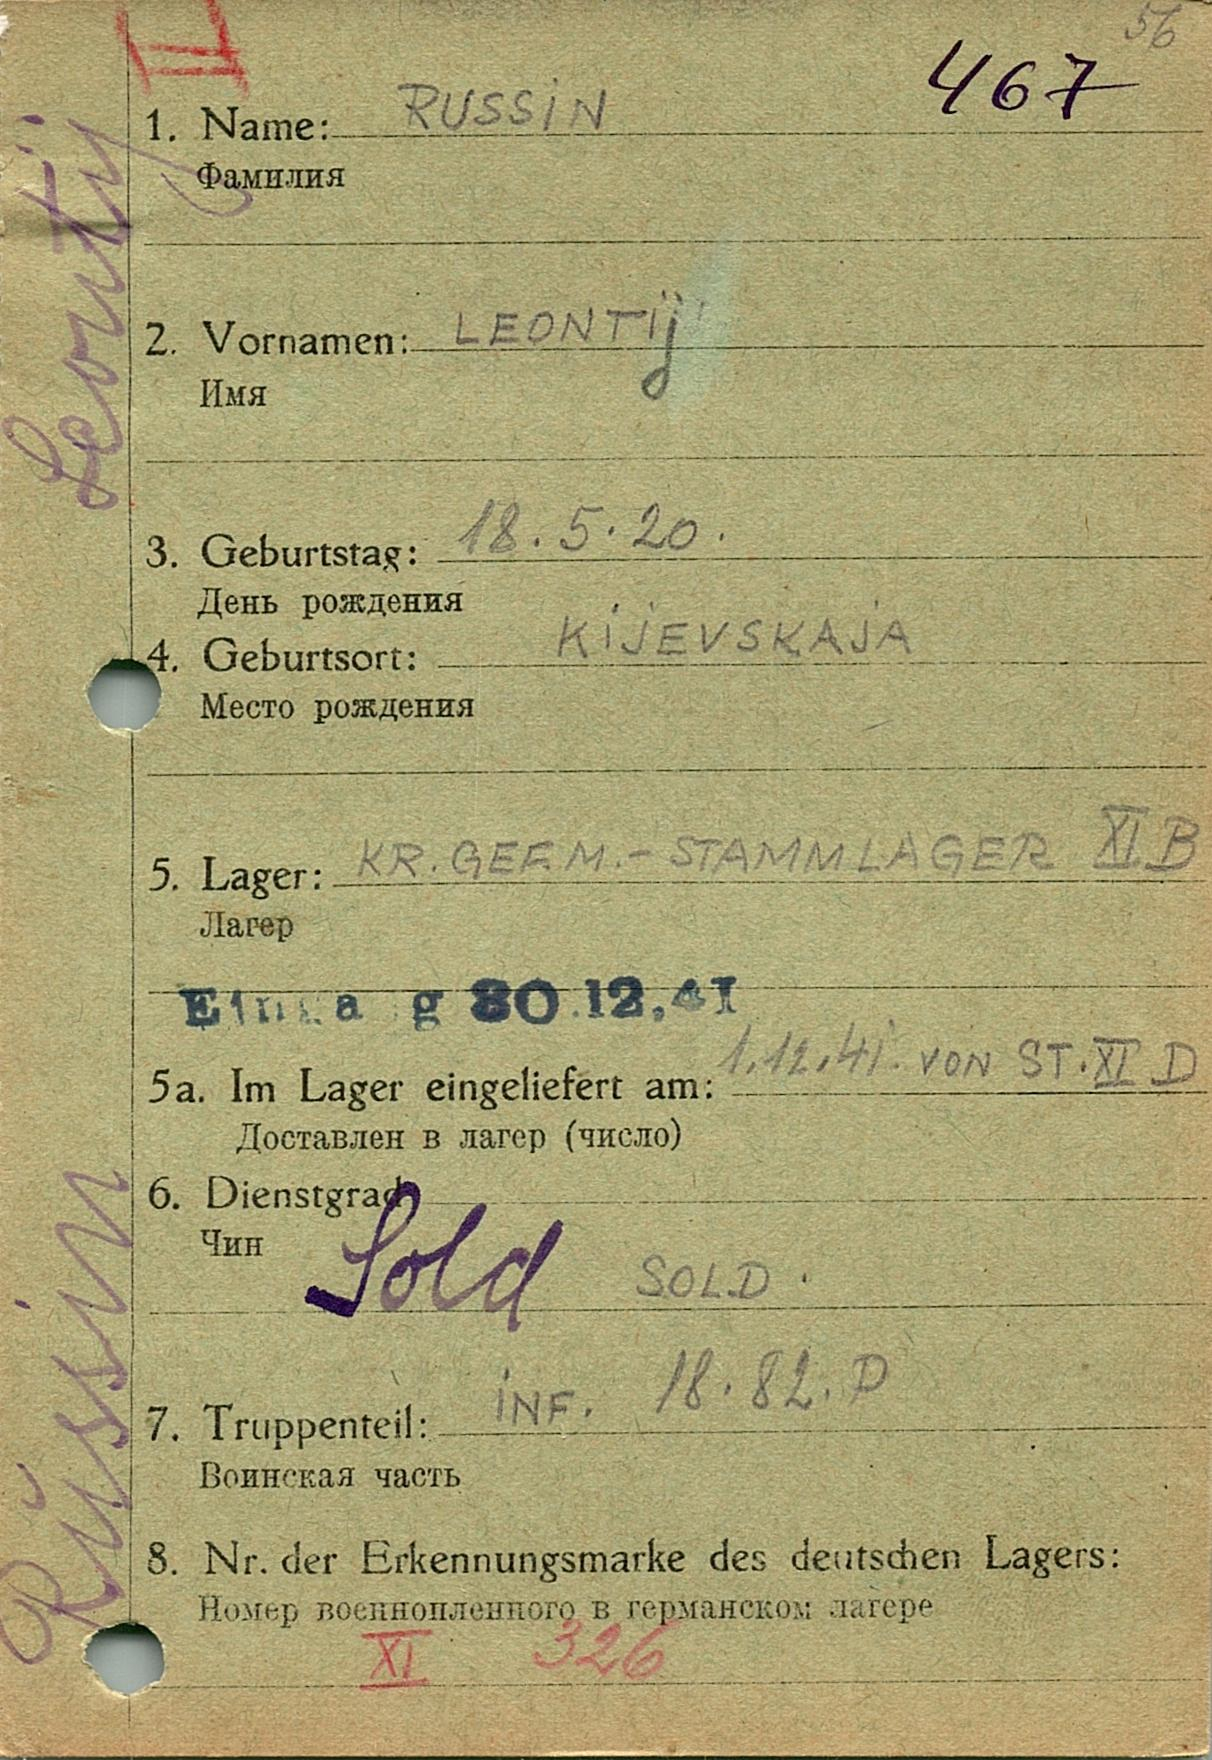 56
II
467
1. Name: RUSSIN
Фамилия
2. Vornamen: LEONTIJ
Имя
3. Geburtstag: 18.5.20.
День рождения
4. Geburtsort: KIJEVSKAJA
Место рождения
5. Lager: KR.GEF.M.-STAMMLAGER XI B
Лагер
30.12.41
5a. Im Lager eingeliefert am: 1.12.41. VON ST. XI D
Доставлен в лагер (число)
6. Dienstgrad
Чин
Sold SOLD.
7. Truppenteil: INF. 18.82.D
Воинская часть
8. Nr. der Erkennungsmarke des deutschen Lagers:
Номер военнопленного в германском лагере
XI 326
Russin Leontij